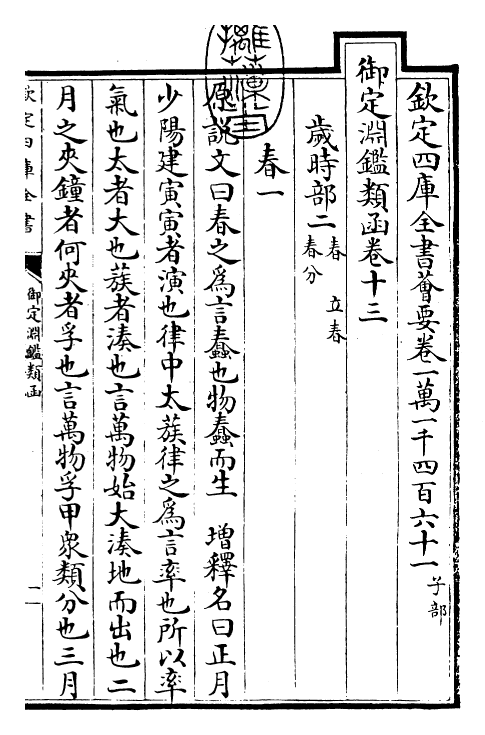 欽定四庫全書薈要卷一萬一千四百六十一 子部
御定淵鑑類函卷十三
歲時部二 春 立春 春分
春一
原說文曰春之為言蠢也物蠢而生 增釋名曰正月
少陽建寅寅者演也律中太蔟律之為言率也所以率
氣也太者大也蔟者湊也言萬物始大湊地而出也二
月之夾鐘者何夾者孚也言萬物孚甲衆類分也三月
欽定四庫全書
御定淵鑑類函